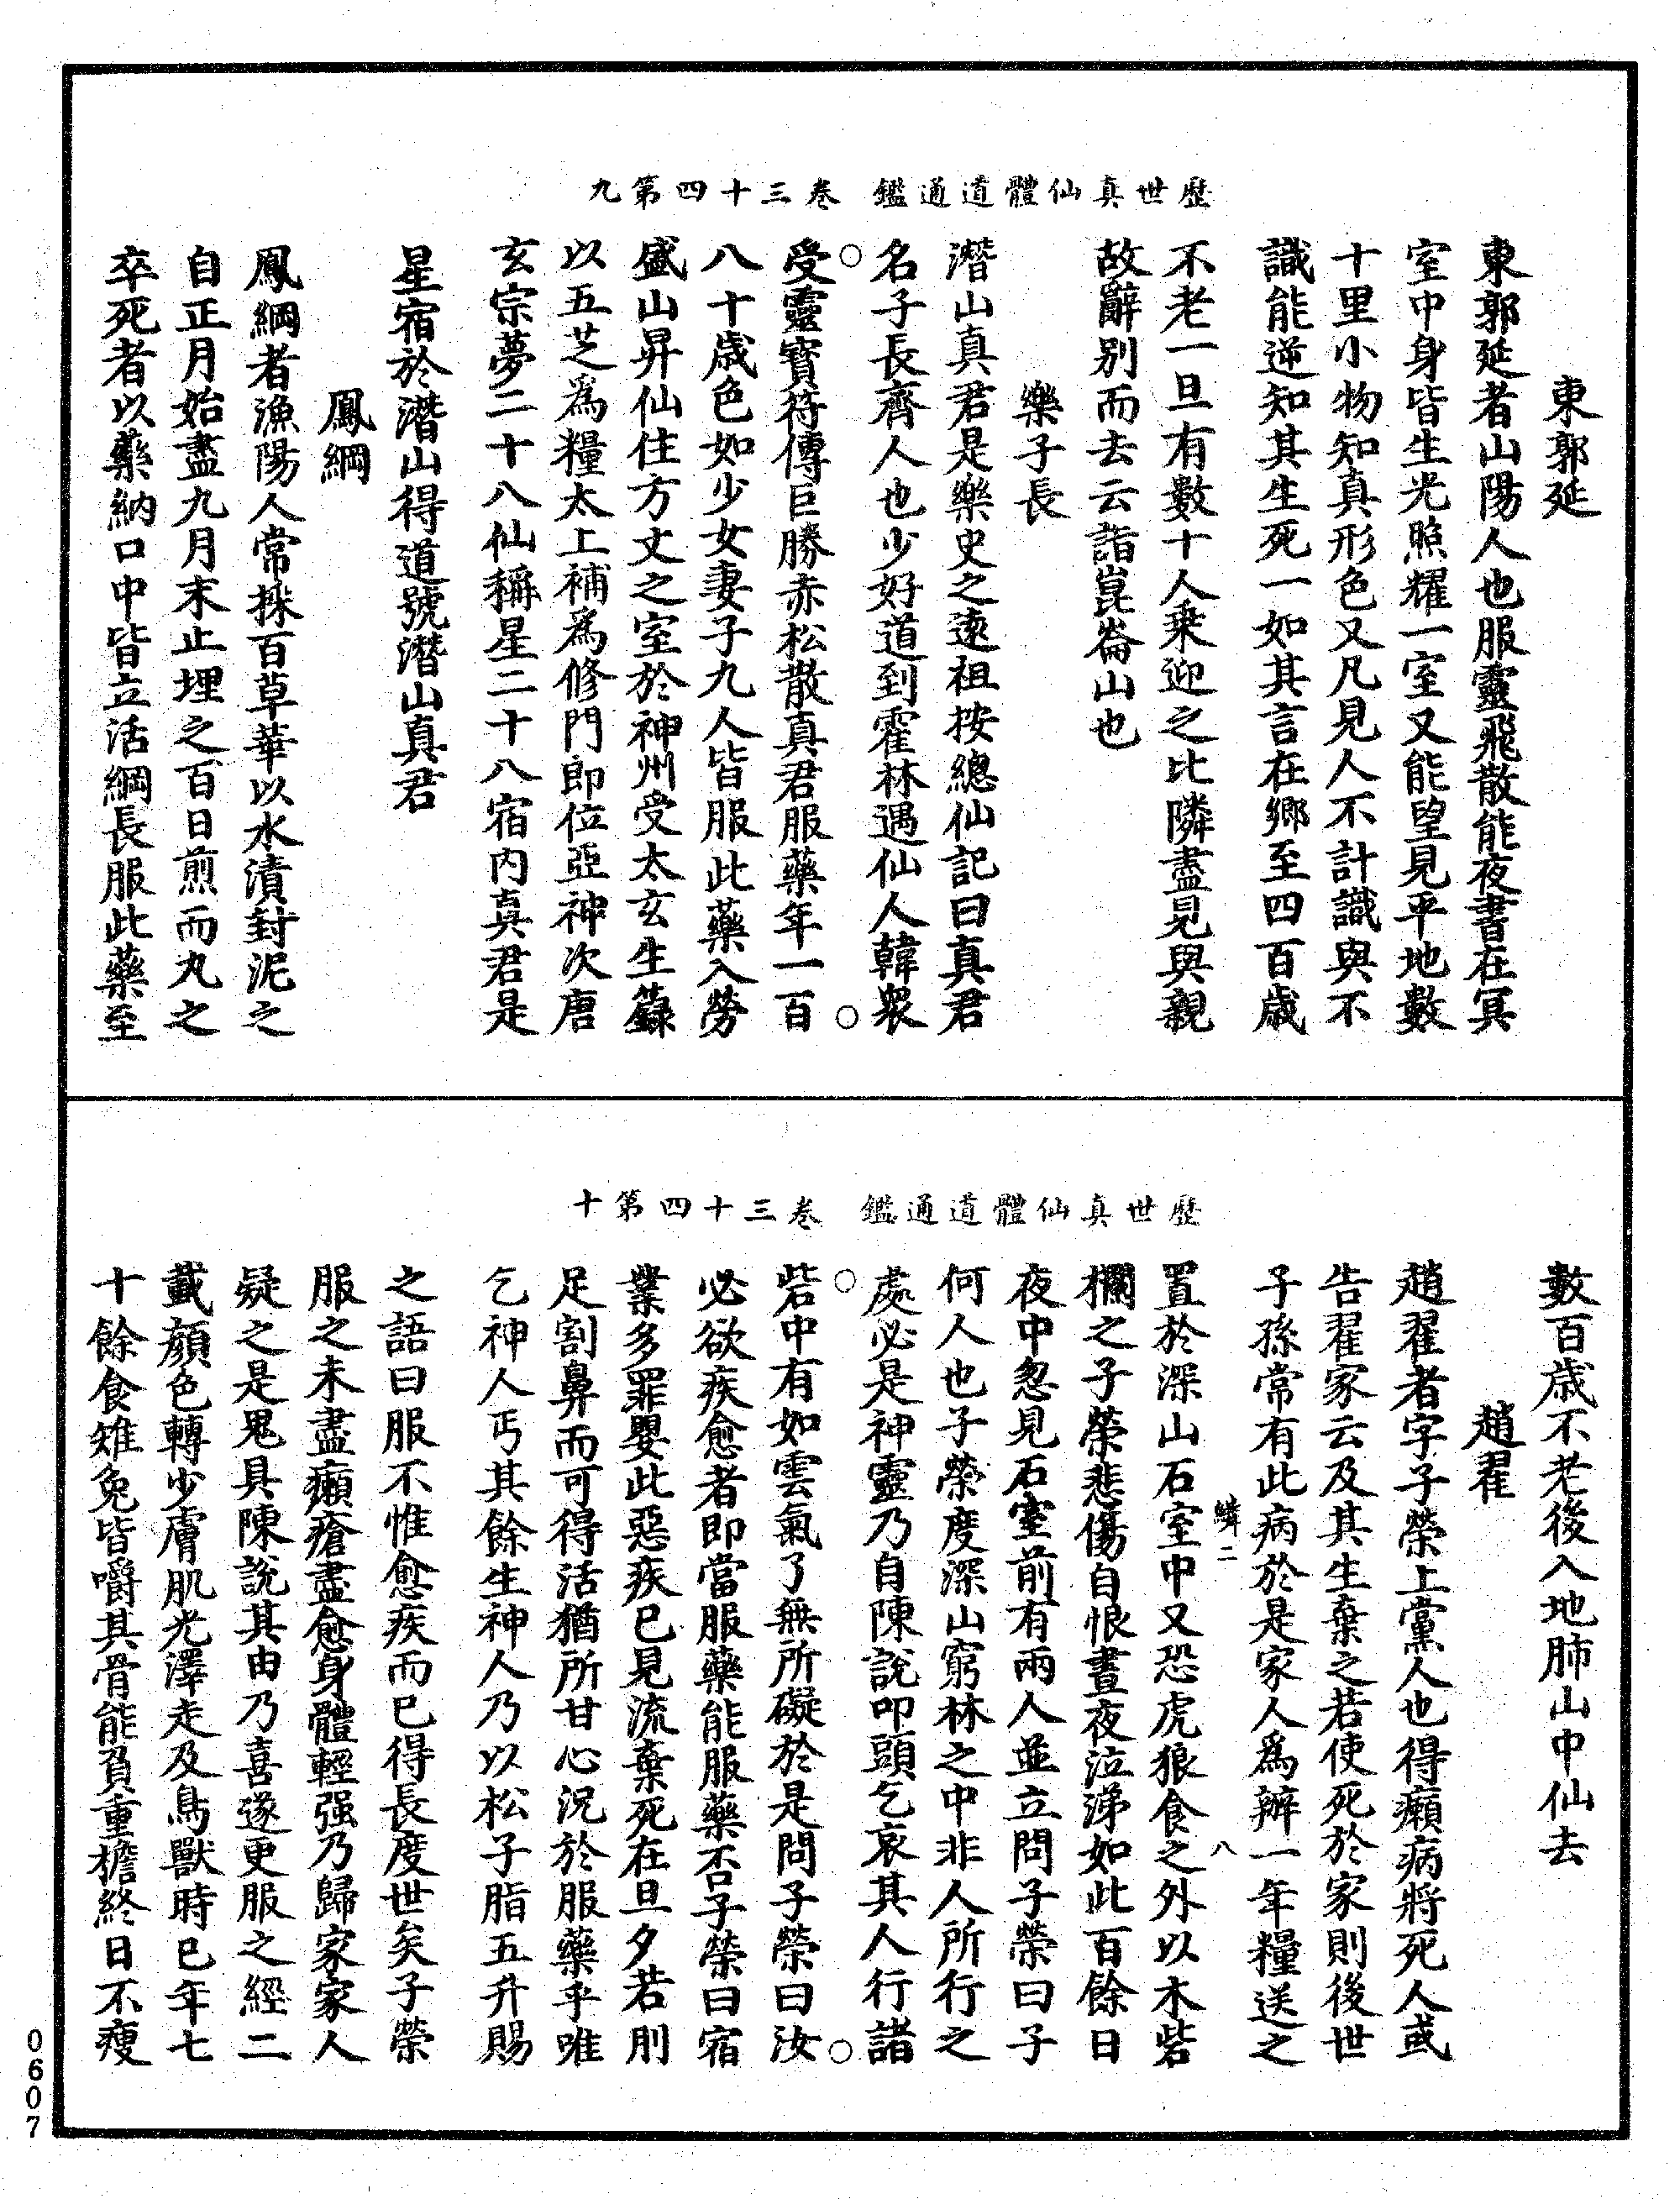 歷世真仙體道通鑑　卷三十四第九
東郭延
東郭延者山陽人也服靈飛散能夜書在冥
室中身皆生光照耀一室又能望見平地數
十里小物知真形色又凡見人不計識與不
識能逆知其生死一如其言在鄉至四百歲
不老一旦有數十人乘迎之比隣盡見與親
故辭別而去云詣崑崙山也
樂子長
潛山真君是樂史之遠祖按總仙記曰真君
名子長齊人也少好道到霍林遇仙人韓衆
受靈寶符傳巨勝赤松散真君服藥年一百
八十歲色如少女妻子九人皆服此藥入勞
盛山昇仙住方丈之室於神州受太玄生籙
以五芝爲糧太上補爲修門郎位亞神次唐
玄宗夢二十八仙稱星二十八宿內真君是
星宿於潛山得道號潛山真君
鳳綱
鳳綱者漁陽人常採百草華以水漬封泥之
自正月始盡九月末止埋之百日煎而丸之
卒死者以藥納口中皆立活綱長服此藥至
歷世真仙體道通鑑　卷三十四第十
數百歲不老後入地肺山中仙去
趙翟
趙翟者字子榮上黨人也得癩病將死人或
告翟家云及其生棄之若使死於家則後世
子孫常有此病於是家人爲辦一年糧送之
鱗二　八
置於深山石室中又恐虎狼食之外以木砦
欄之子榮悲傷自恨晝夜泣涕如此百餘日
夜中忽見石室前有兩人並立問子榮曰子
何人也子榮度深山窮林之中非人所行之
處必是神靈乃自陳說叩頭乞哀其人行諸
砦中有如雲氣了無所礙於是問子榮曰汝
必欲疾愈者即當服藥能服藥否子榮曰宿
業多罪嬰此惡疾已見流棄死在旦夕若刖
足割鼻而可得活猶所甘心況於服藥乎唯
乞神人丐其餘生神人乃以松子脂五升賜
之語曰服不惟愈疾而已得長度世矣子榮
服之未盡癩瘡盡愈身體輕强乃歸家家人
疑之是鬼具陳說其由乃喜遂更服之經二
載顔色轉少膚肌光澤走及鳥獸時已年七
十餘食雉兔皆嚼其骨能負重檐終日不瘦
0607